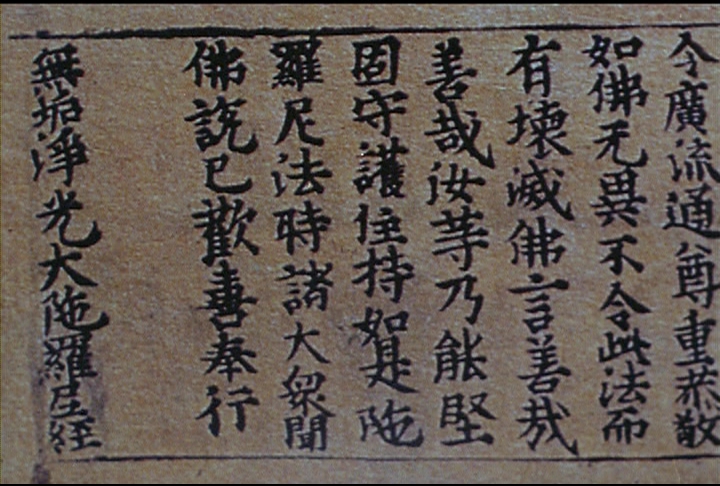 令廣流通尊重恭敬
如佛无異不令此法而
有壊滅佛言善哉
善哉汝等乃能堅
固守護住持如是陁
羅尼法時諸大衆聞
佛説已歡喜奉行
無垢淨光大陁羅尼経